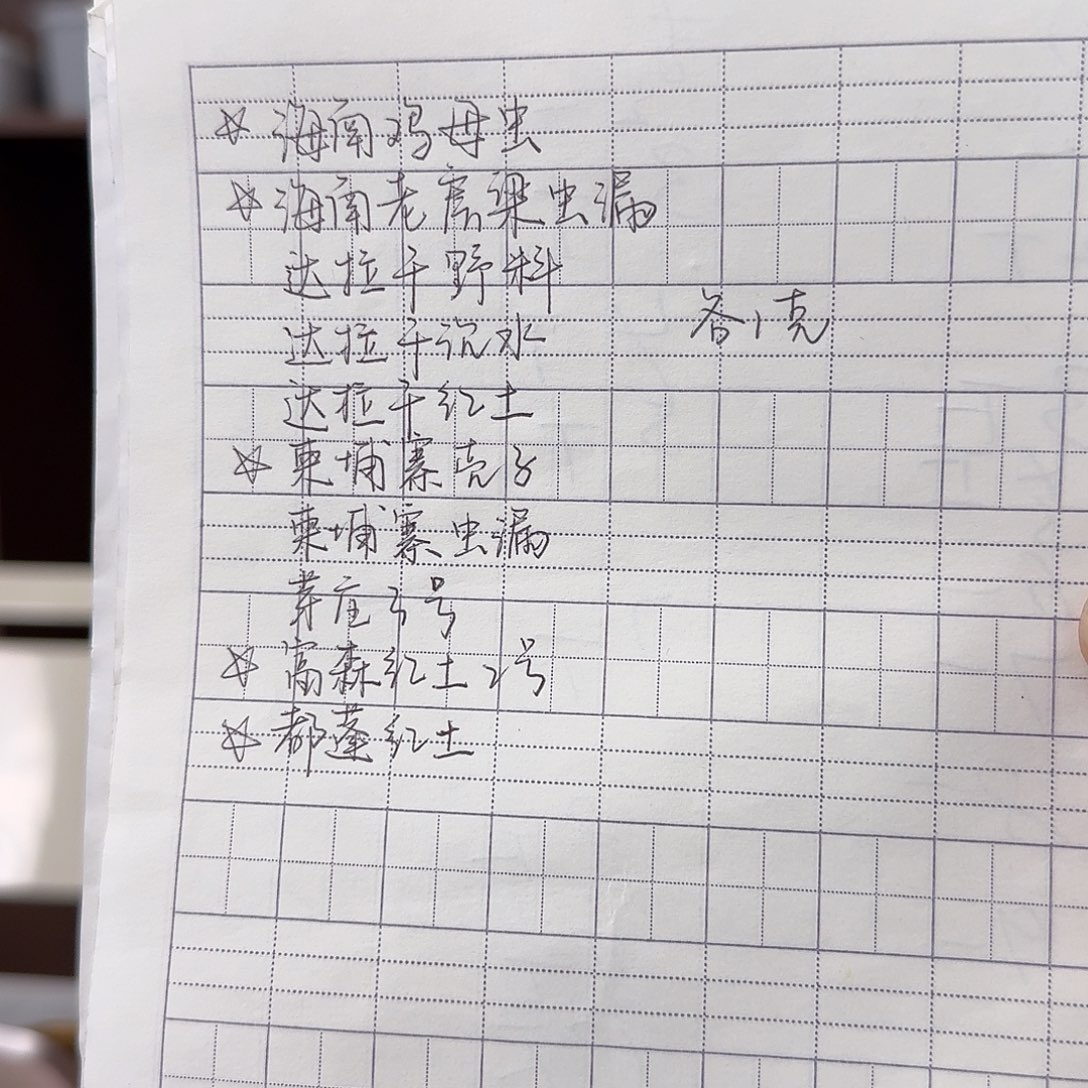 ☆ 海南鸡母虫
☆ 海南老房梁虫漏
达拉干野料
达拉干沉水 各1克
达拉干红土
☆ 柬埔寨壳子
柬埔寨虫漏
芽庄3号
☆ 富森红土2号
☆ 都蓬红土